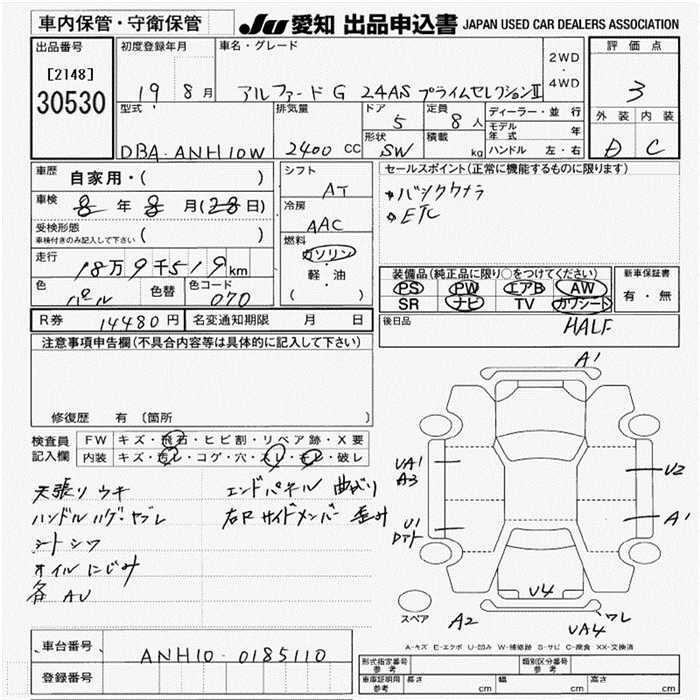 車内保管・守衛保管 JU 愛知 出品申込書 JAPAN USED CAR DEALERS ASSOCIATION
出品番号 初度登録年月 車名・グレード 2WD ・ 4WD 評価点
[2148]
30530
19 8月 アルファードG 24AS プライムセレクションII 3
型式 排気量 ドア 5 定員 8人 ディーラー・並行 外装 内装
モデル年式 年
DBA-ANH10W 2400cc 形状 SW 積載 kg ハンドル 左・右 D C
車歴 自家用・( ) シフト AT セールスポイント(正常に機能するものに限ります)
車検 年 月( 日) 冷房 AAC
受検形態 ( )
車検付きのみ記入して下さい
・ETC
走行 18万9千519km 燃料 ガソリン 軽・油 ( )
色 パール 色替 色コード 070
装備品(純正品に限り○をつけてください) 新車保証書
PS PW エアB AW 有・無
SR ナビ TV カワシート
HALF
R券 14480円 名変通知期限 月 日 後日品
注意事項申告欄(不具合内容等は具体的に記入して下さい)
修復歴 有 〔箇所
検査員記入欄 FW キズ・飛石・ヒビ割・リペア跡・X要
内装 キズ・汚レ・コゲ・穴・スレ・モレ・破レ
天張リ ウキ エンドパネル 曲がり
ハンドル ハゲ・ヤブレ 右Rサイドメンバー 歪み
シートシワ
オイルにじみ
各 AU
A1
UA1
A3
U2
U1
A1
U4
スペア A2 UA4 ワレ
A-キズ E-エクボ U-凹み W-補修跡 S-サビ C-腐食 XX-交換済
車台番号 ANH10-0185110
登録番号
形式指定番号 参考 類別区分番号 参考
車庫証明用 参考 長さ cm 幅 cm 高さ cm